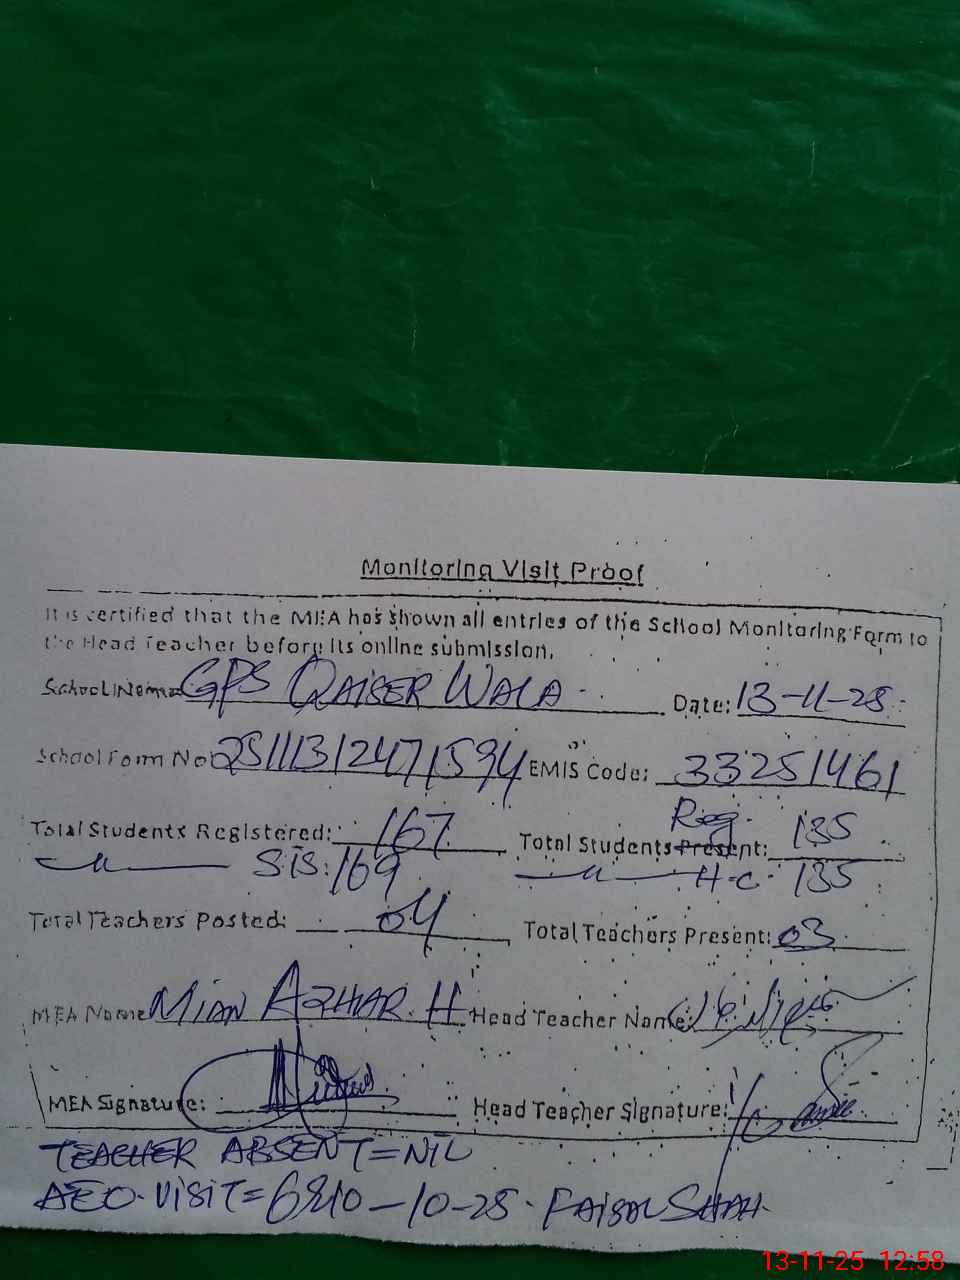 Monitoring Visit Proof
It is certified that the MEA has shown all entries of the School Monitoring Form to
the Head Teacher before its online submission.
School Name: GPS QAISER WALA Date: 13-11-25
School Form No: 25111312471594 EMIS Code: 33251461
Total Students Registered: 167 Total Students Present: Reg. 135
SiS: 169 H.C 135
Total Teachers Posted: 04 Total Teachers Present: 03
MEA Name MIAN AZHAR. H Head Teacher Name:
MEA Signature: Head Teacher Signature:
TEACHER ABSENT = NIL
AEO. VISIT = -10-25. FAISAL SHAH.
13-11-25 12:58